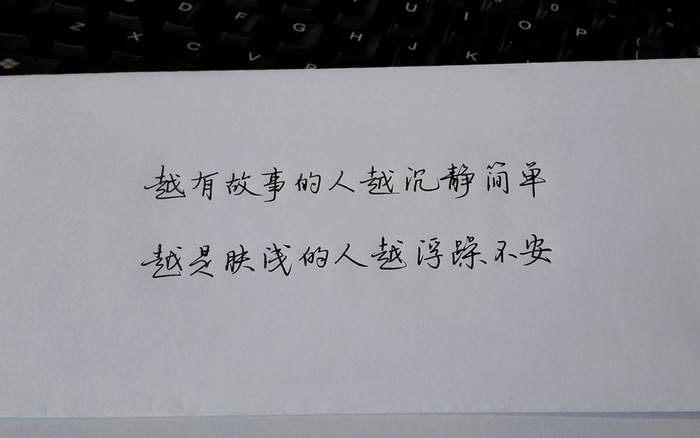 Z X C D F G H J K L
Y U I O P
越有故事的人越沉静简单
越是肤浅的人越浮躁不安